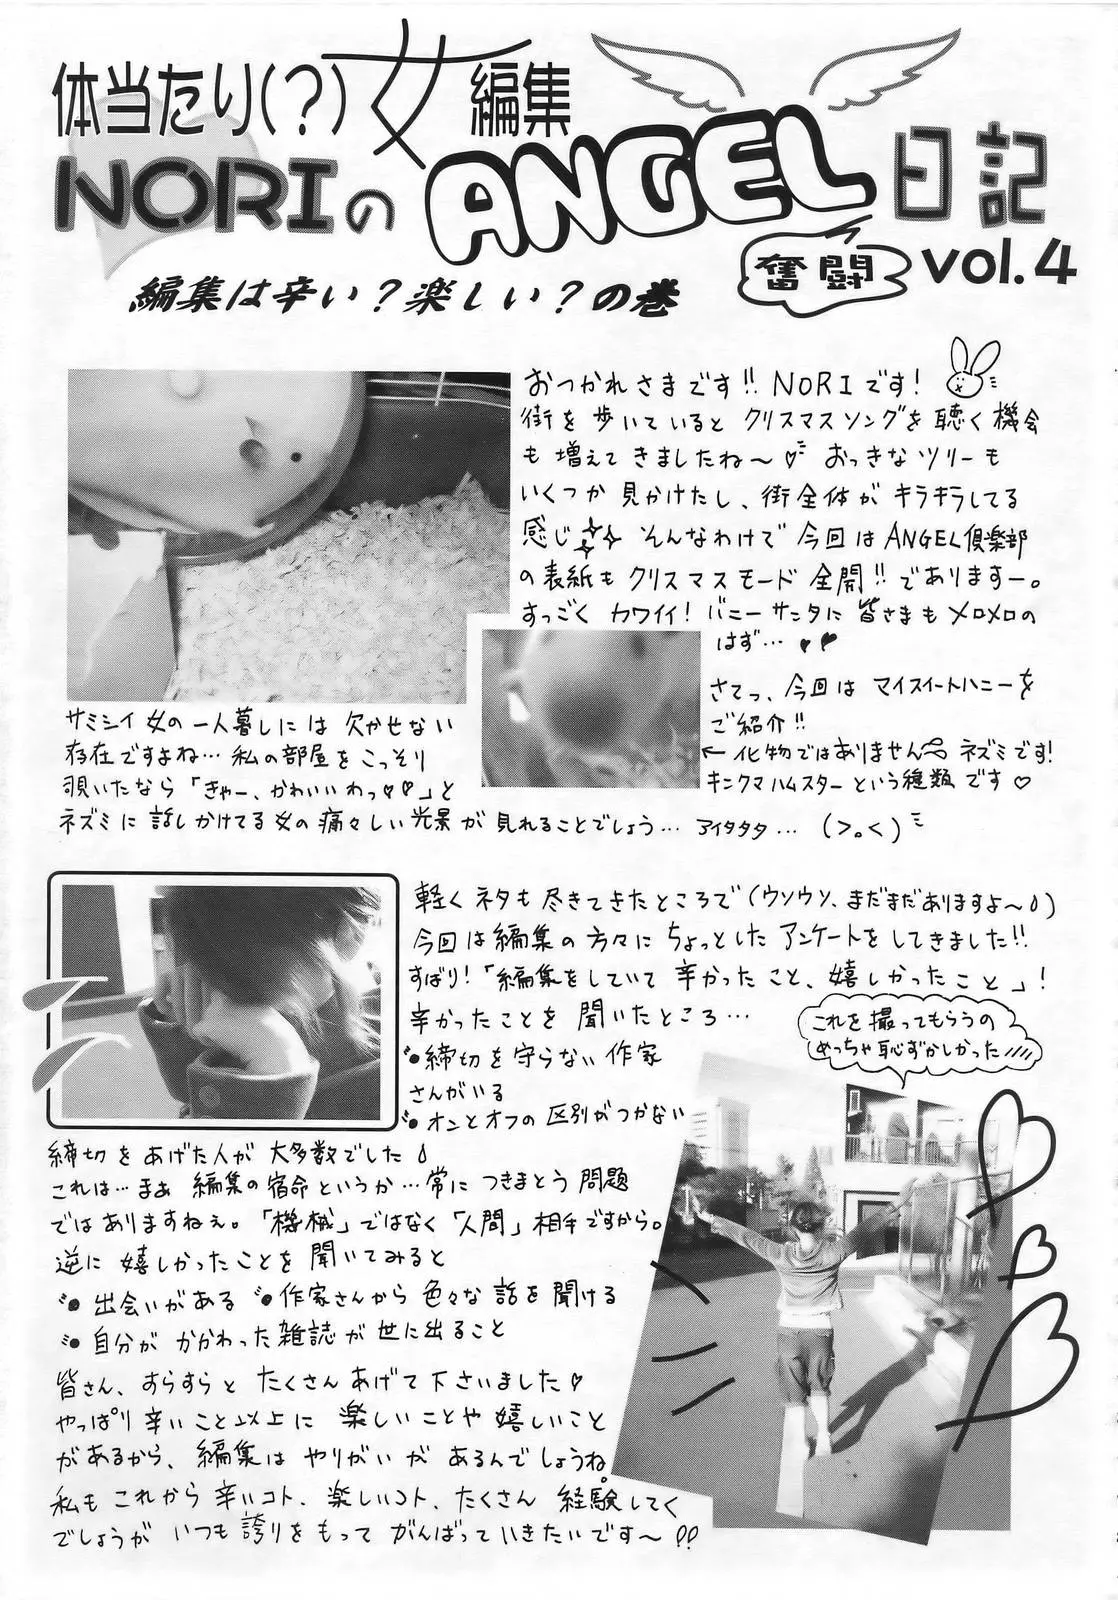 体当たり(?)女編集
NORIのANGEL日記
奮闘
vol.4
編集は辛い?楽しい?の巻
おつかれさまです!! NORIです!
街を歩いていると クリスマスソングを聴く機会
も増えてきましたね〜♡ おっきなツリーも
いくつか見かけたし、街全体がキラキラしてる
感じ そんなわけで今回はANGEL倶楽部
の表紙もクリスマスモード全開!!でありますー。
すっごくカワイイ!バニーサンタに皆さまもメロメロの
はず…♥♥
さてっ、今回はマイスイートハニーを
ご紹介!!
←化物ではありません ネズミです!
キンクマハムスターという種類です♡
サミシイ女の一人暮しには欠かせない
存在ですよね…私の部屋をこっそり
覗いたなら「きゃー、かわいいわっ♥♥」と
ネズミに話しかけてる女の痛々しい光景が見れることでしょう…アイタタタ…(>。<)
軽くネタも尽きてきたところで(ウソウソ、まだまだありますよ〜)
今回は編集の方々にちょっとしたアンケートをしてきました!!
ずばり!「編集をしていて辛かったこと、嬉しかったこと」!
辛かったことを聞いたところ…
●締切を守らない作家
さんがいる
●オンとオフの区別がつかない
これを撮ってもらうの
めっちゃ恥ずかしかった////
締切をあげた人が大多数でした
これは…まぁ 編集の宿命というか…常につきまとう問題
ではありますねぇ。「機械」ではなく「人間」相手ですから。
逆に嬉しかったことを聞いてみると
●出会いがある ●作家さんから色々な話を聞ける
●自分がかかわった雑誌が世に出ること
皆さん、すらすらとたくさんあげて下さいました♡
やっぱり辛いこと以上に楽しいことや嬉しいこと
があるから、編集はやりがいがあるんでしょうね。
私もこれから辛いコト、楽しいコト、たくさん経験してく
でしょうがいつも誇りをもってがんばっていきたいです〜!!